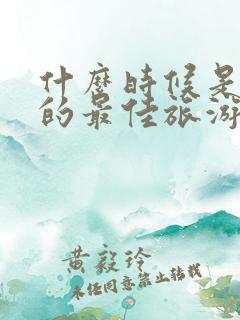 什麼時候是
的最佳旅游
黄毅玲
未经同意禁止转载